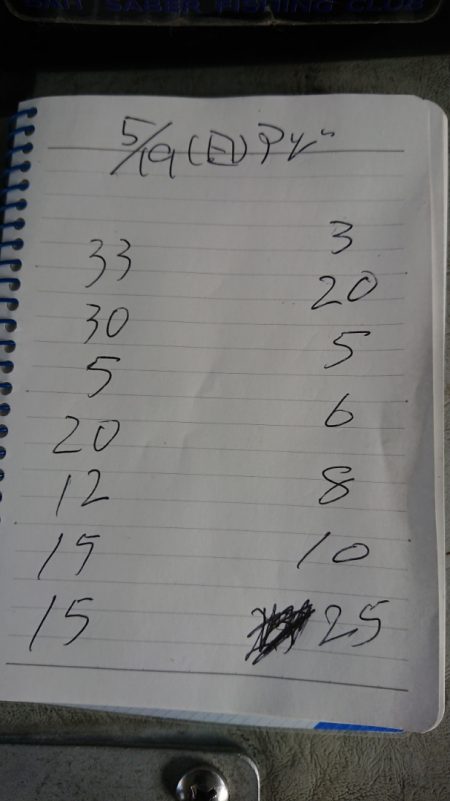 SABER FISHING CLUB
5/19(日)アジ
33 3
30 20
5 5
20 6
12 8
15 10
15 25